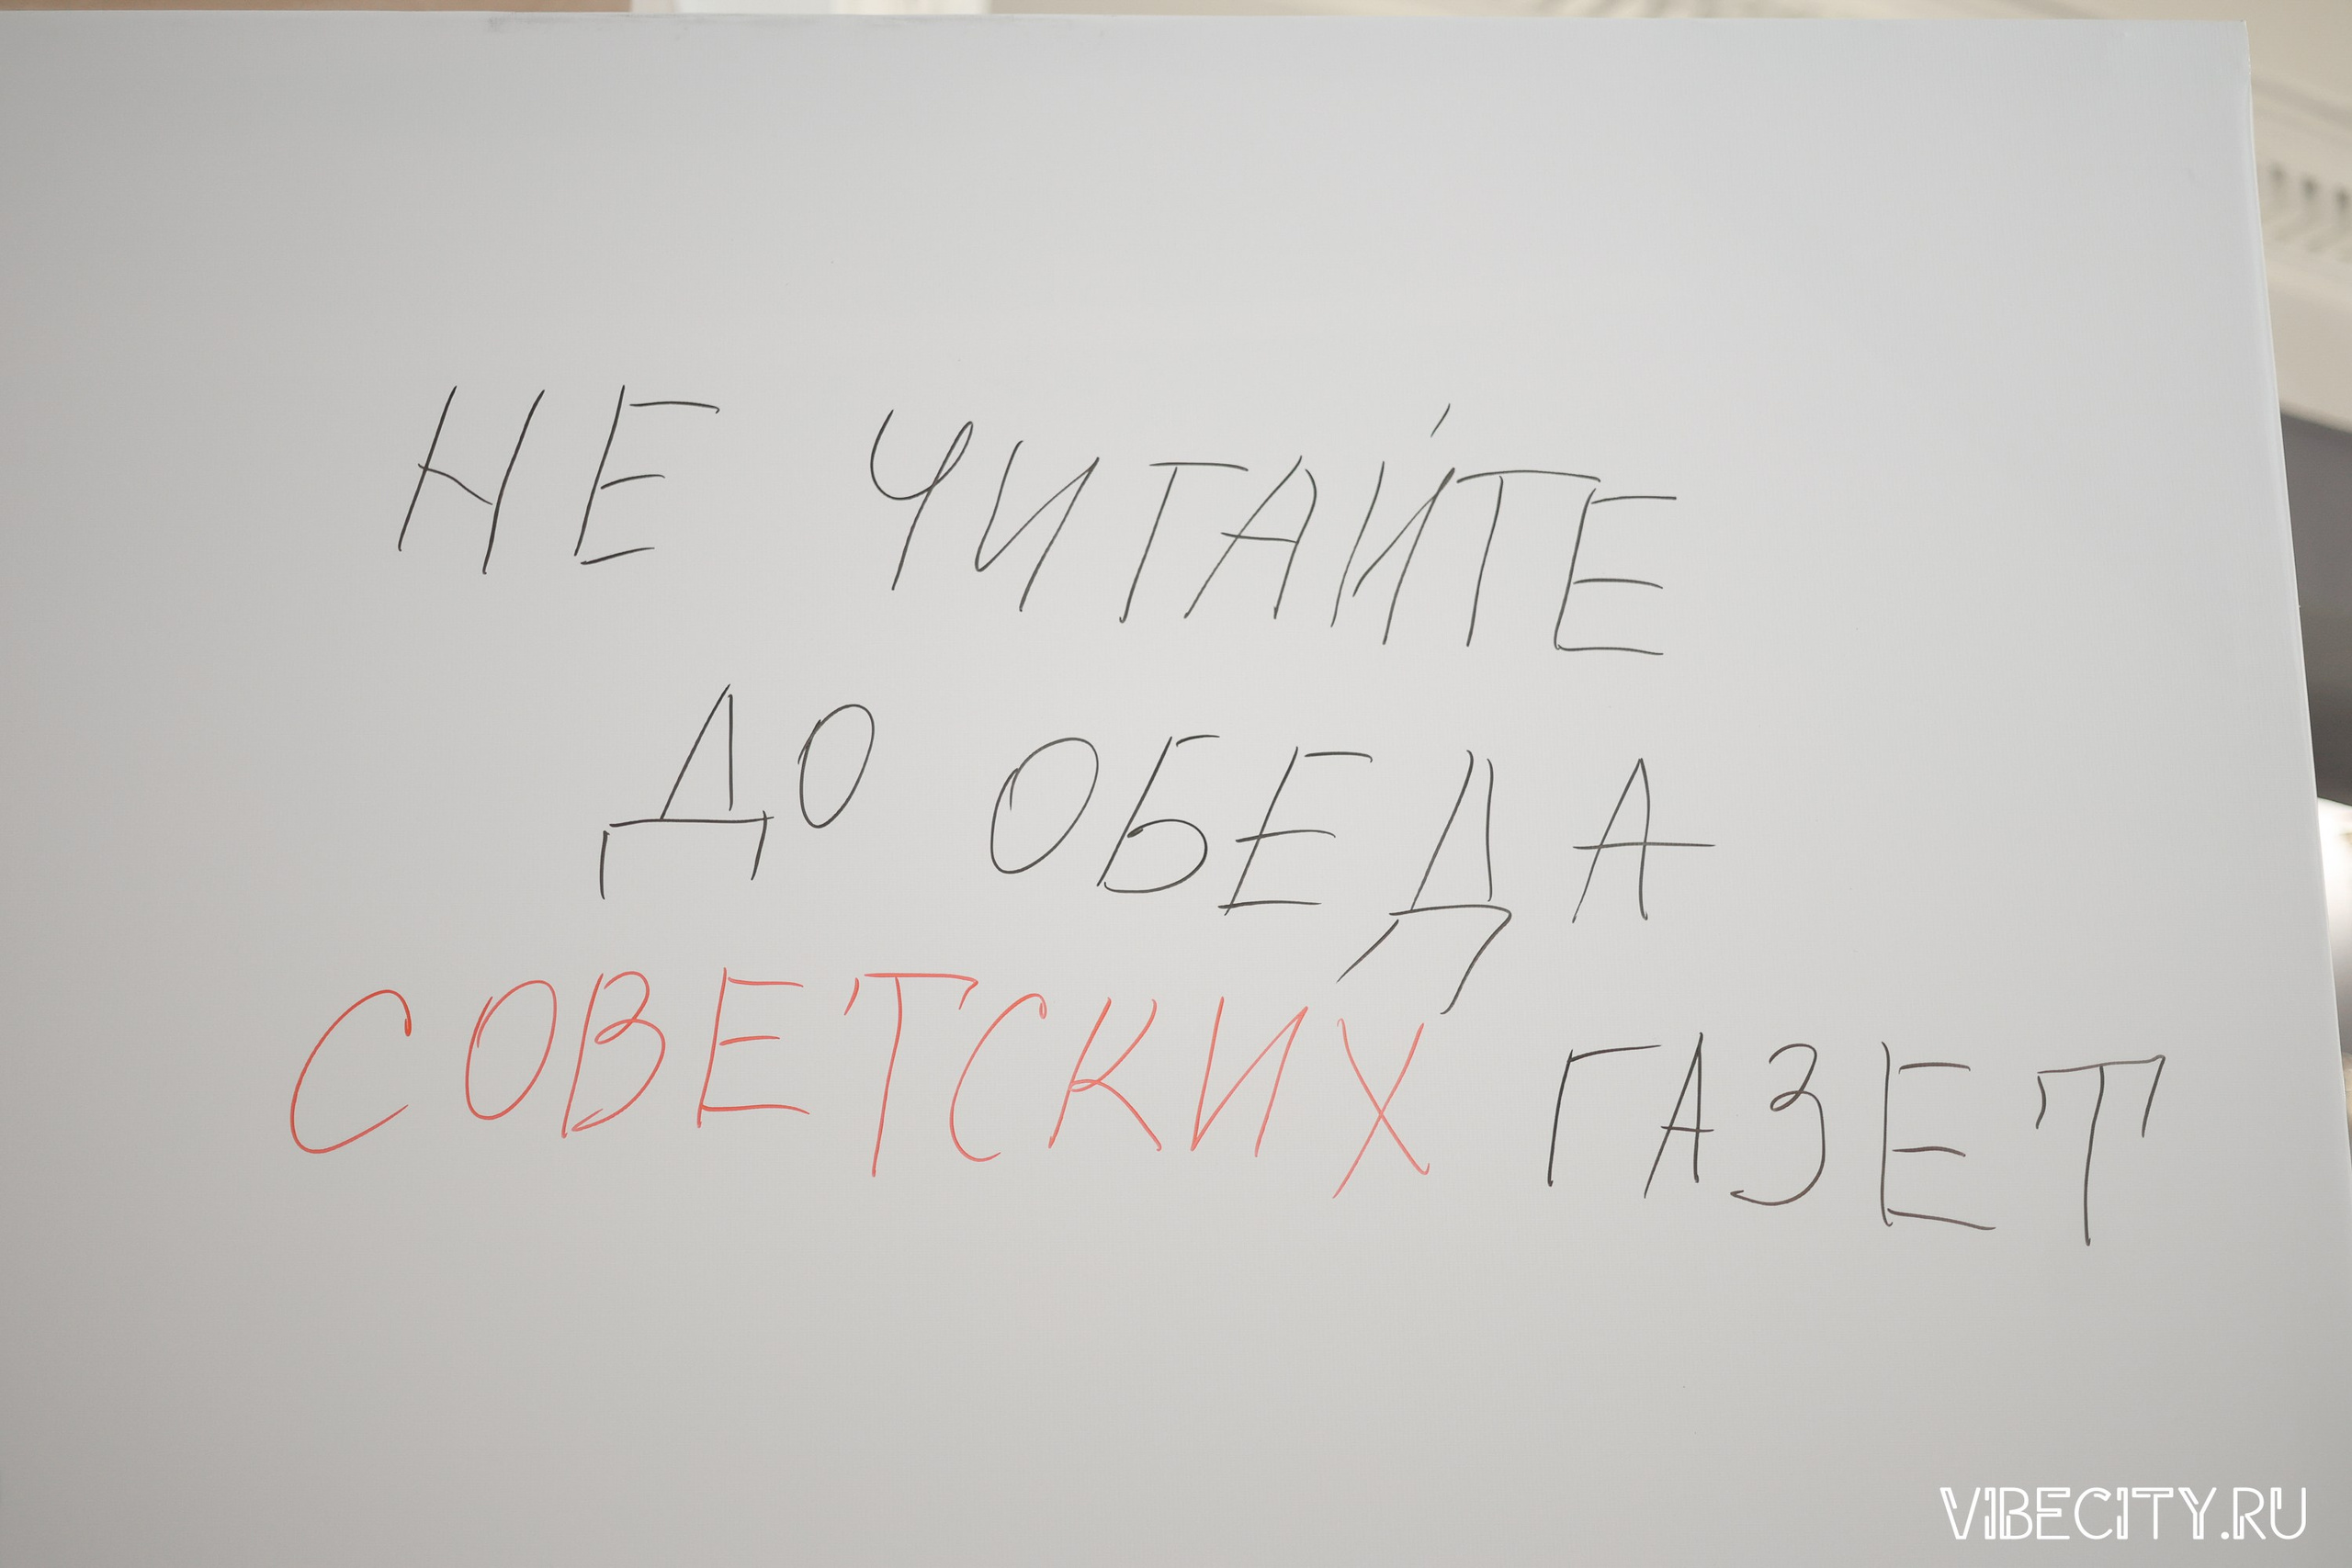 НЕ ЧИТАЙТЕ
ДО ОБЕДА
СОВЕТСКИХ ГАЗЕТ
VIBECITY.RU